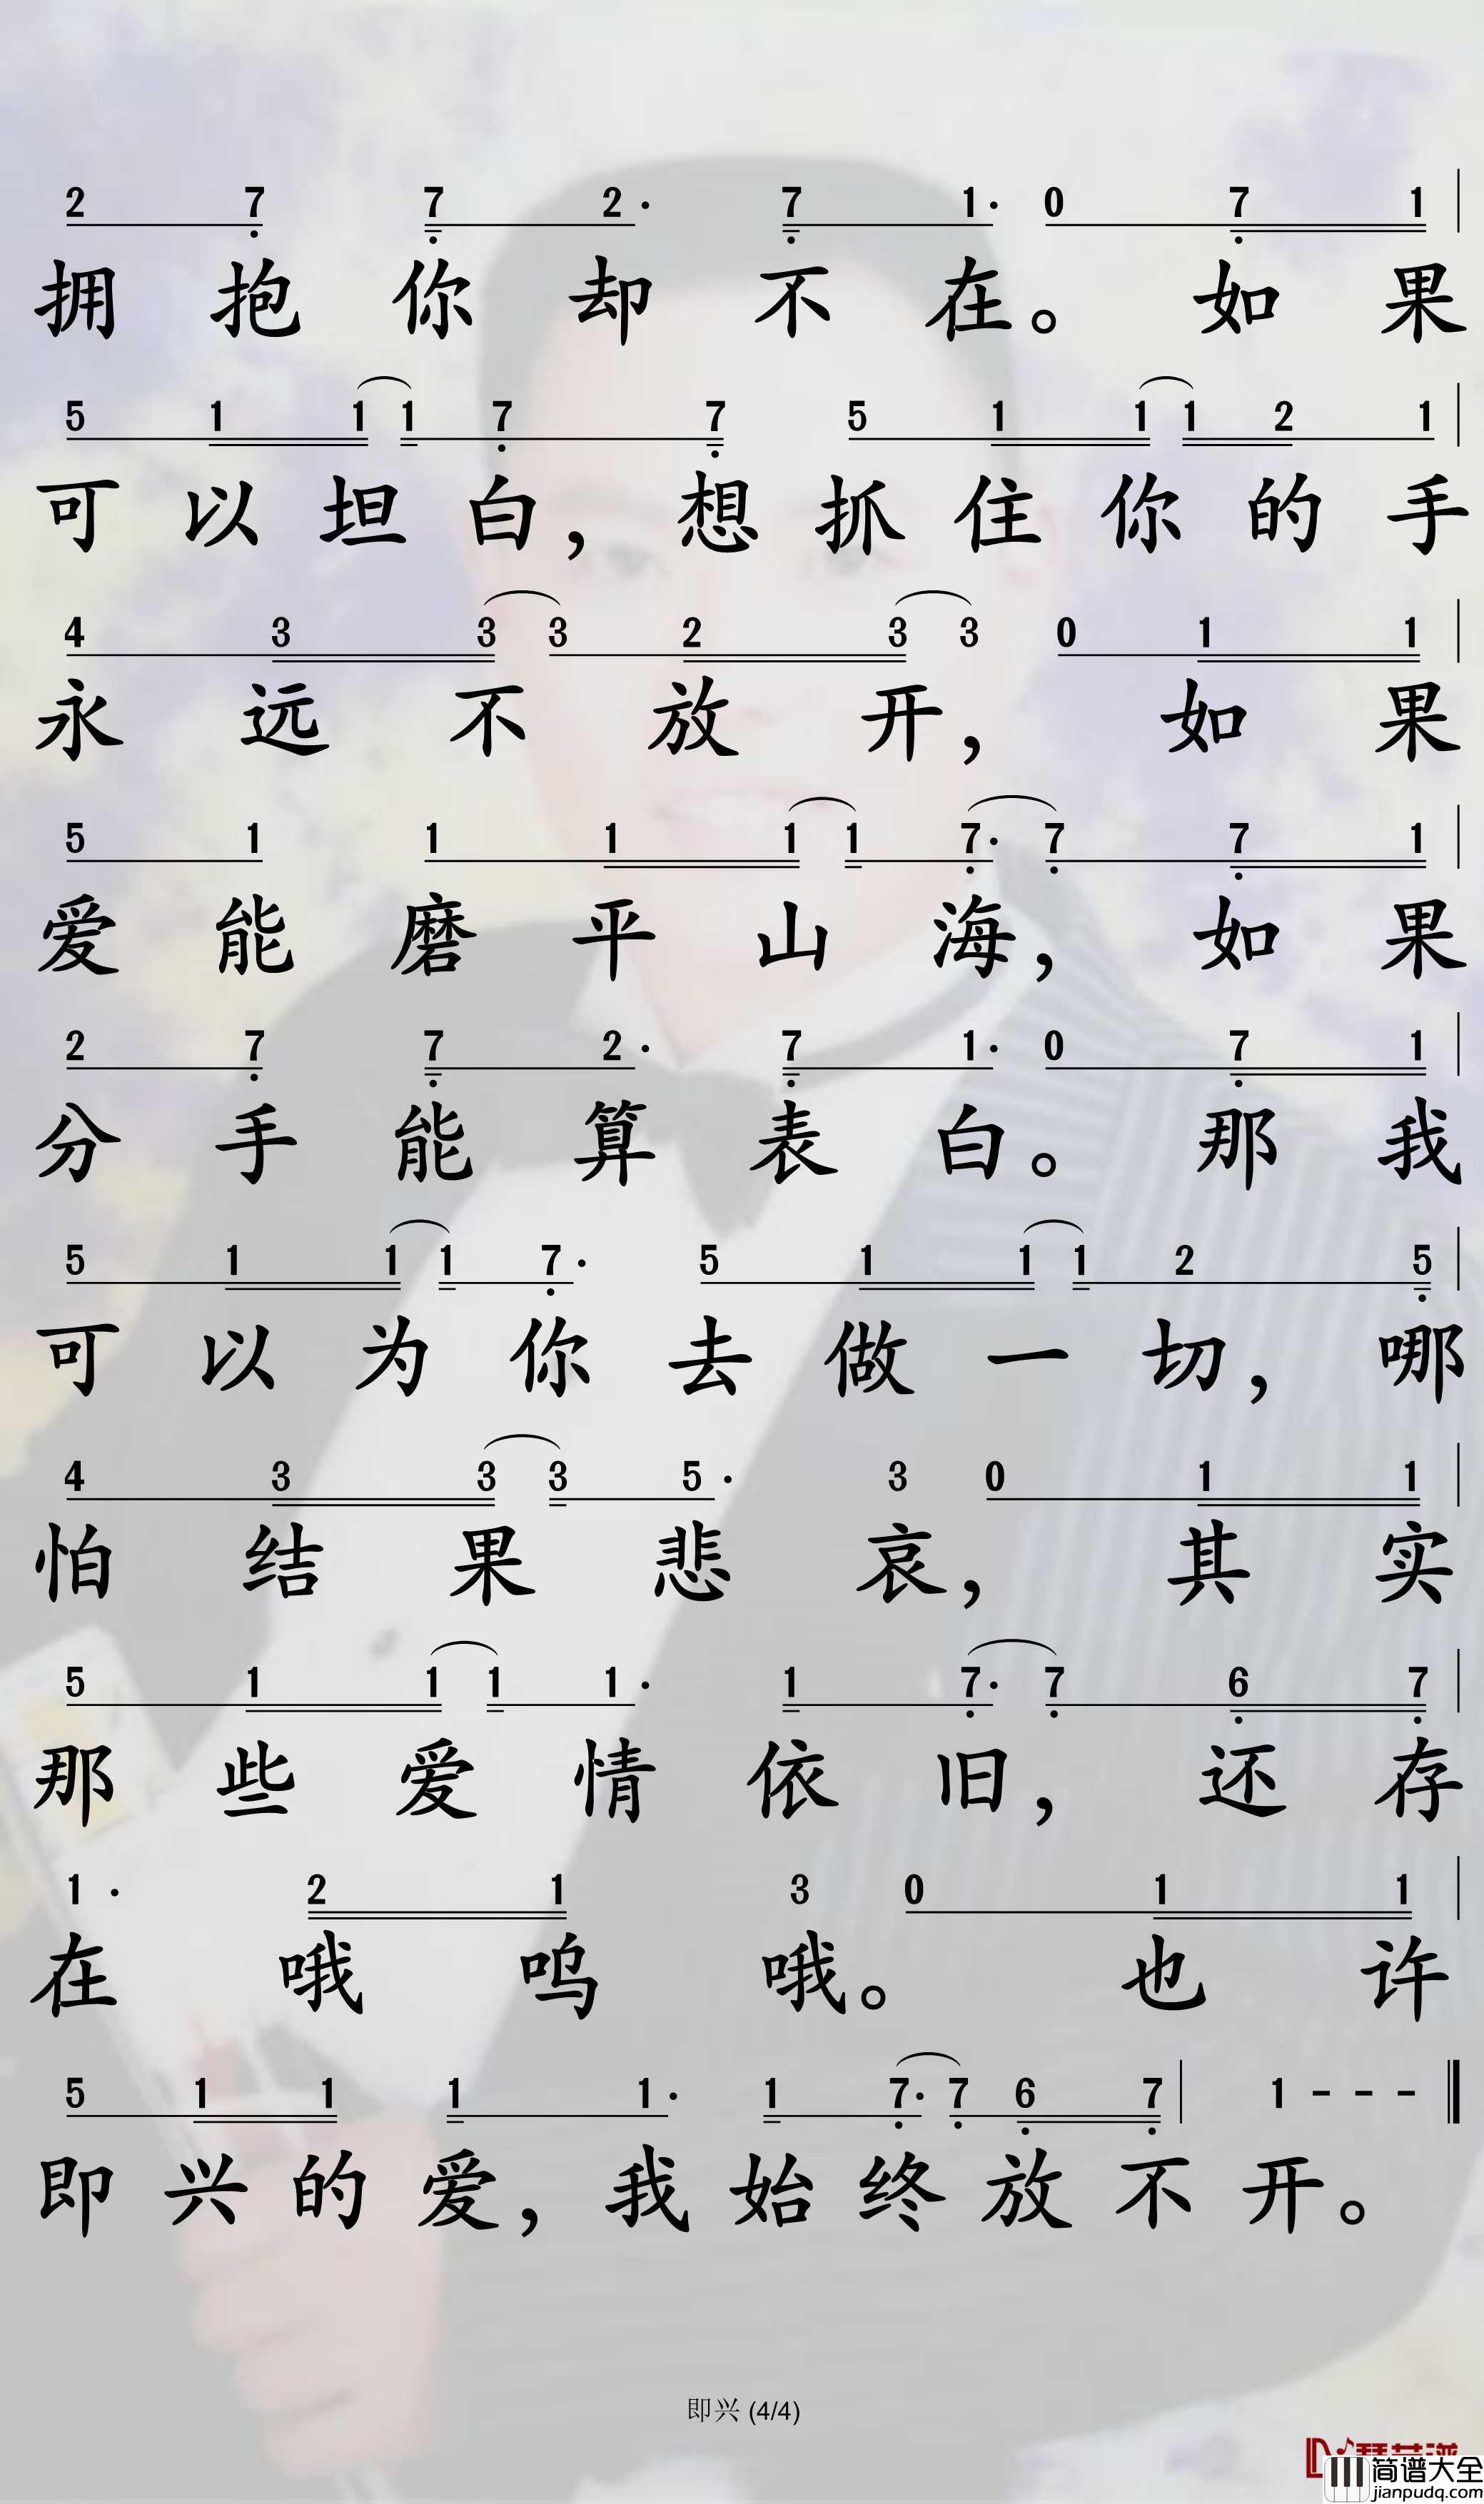 2 7 7 2· 7 1· 0 7 1
拥抱你却不在。如果
5 1 1 1 7 7 5 1 1 1 2 1
可以坦白，想抓住你的手
4 3 3 3 2 3 3 0 1 1
永远不放开，如果
5 1 1 1 1 1 7· 7 7 1
爱能磨平山海，如果
2 7 7 2· 7 1· 0 7 1
分手能算表白。那我
5 1 1 1 7· 5 1 1 1 2 5
可以为你去做一切，哪
4 3 3 3 5· 3 0 1 1
怕结果悲哀，其实
5 1 1 1 1· 1 7· 7 6 7
那些爱情依旧，还存
1· 2 1 3 0 1 1
在哦呜哦。也许
5 1 1 1 1· 1 7· 7 6 7 1 - - -
即兴的爱，我始终放不开。
即兴 (4/4)
简谱大全
jianpudq.com